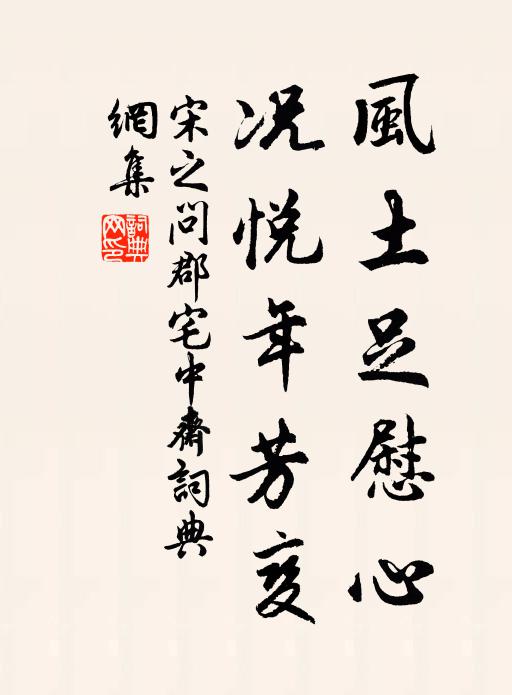 風土足慰心
况悅年芳变
宋之问郡宅中齋詞典
網集
詞典网印